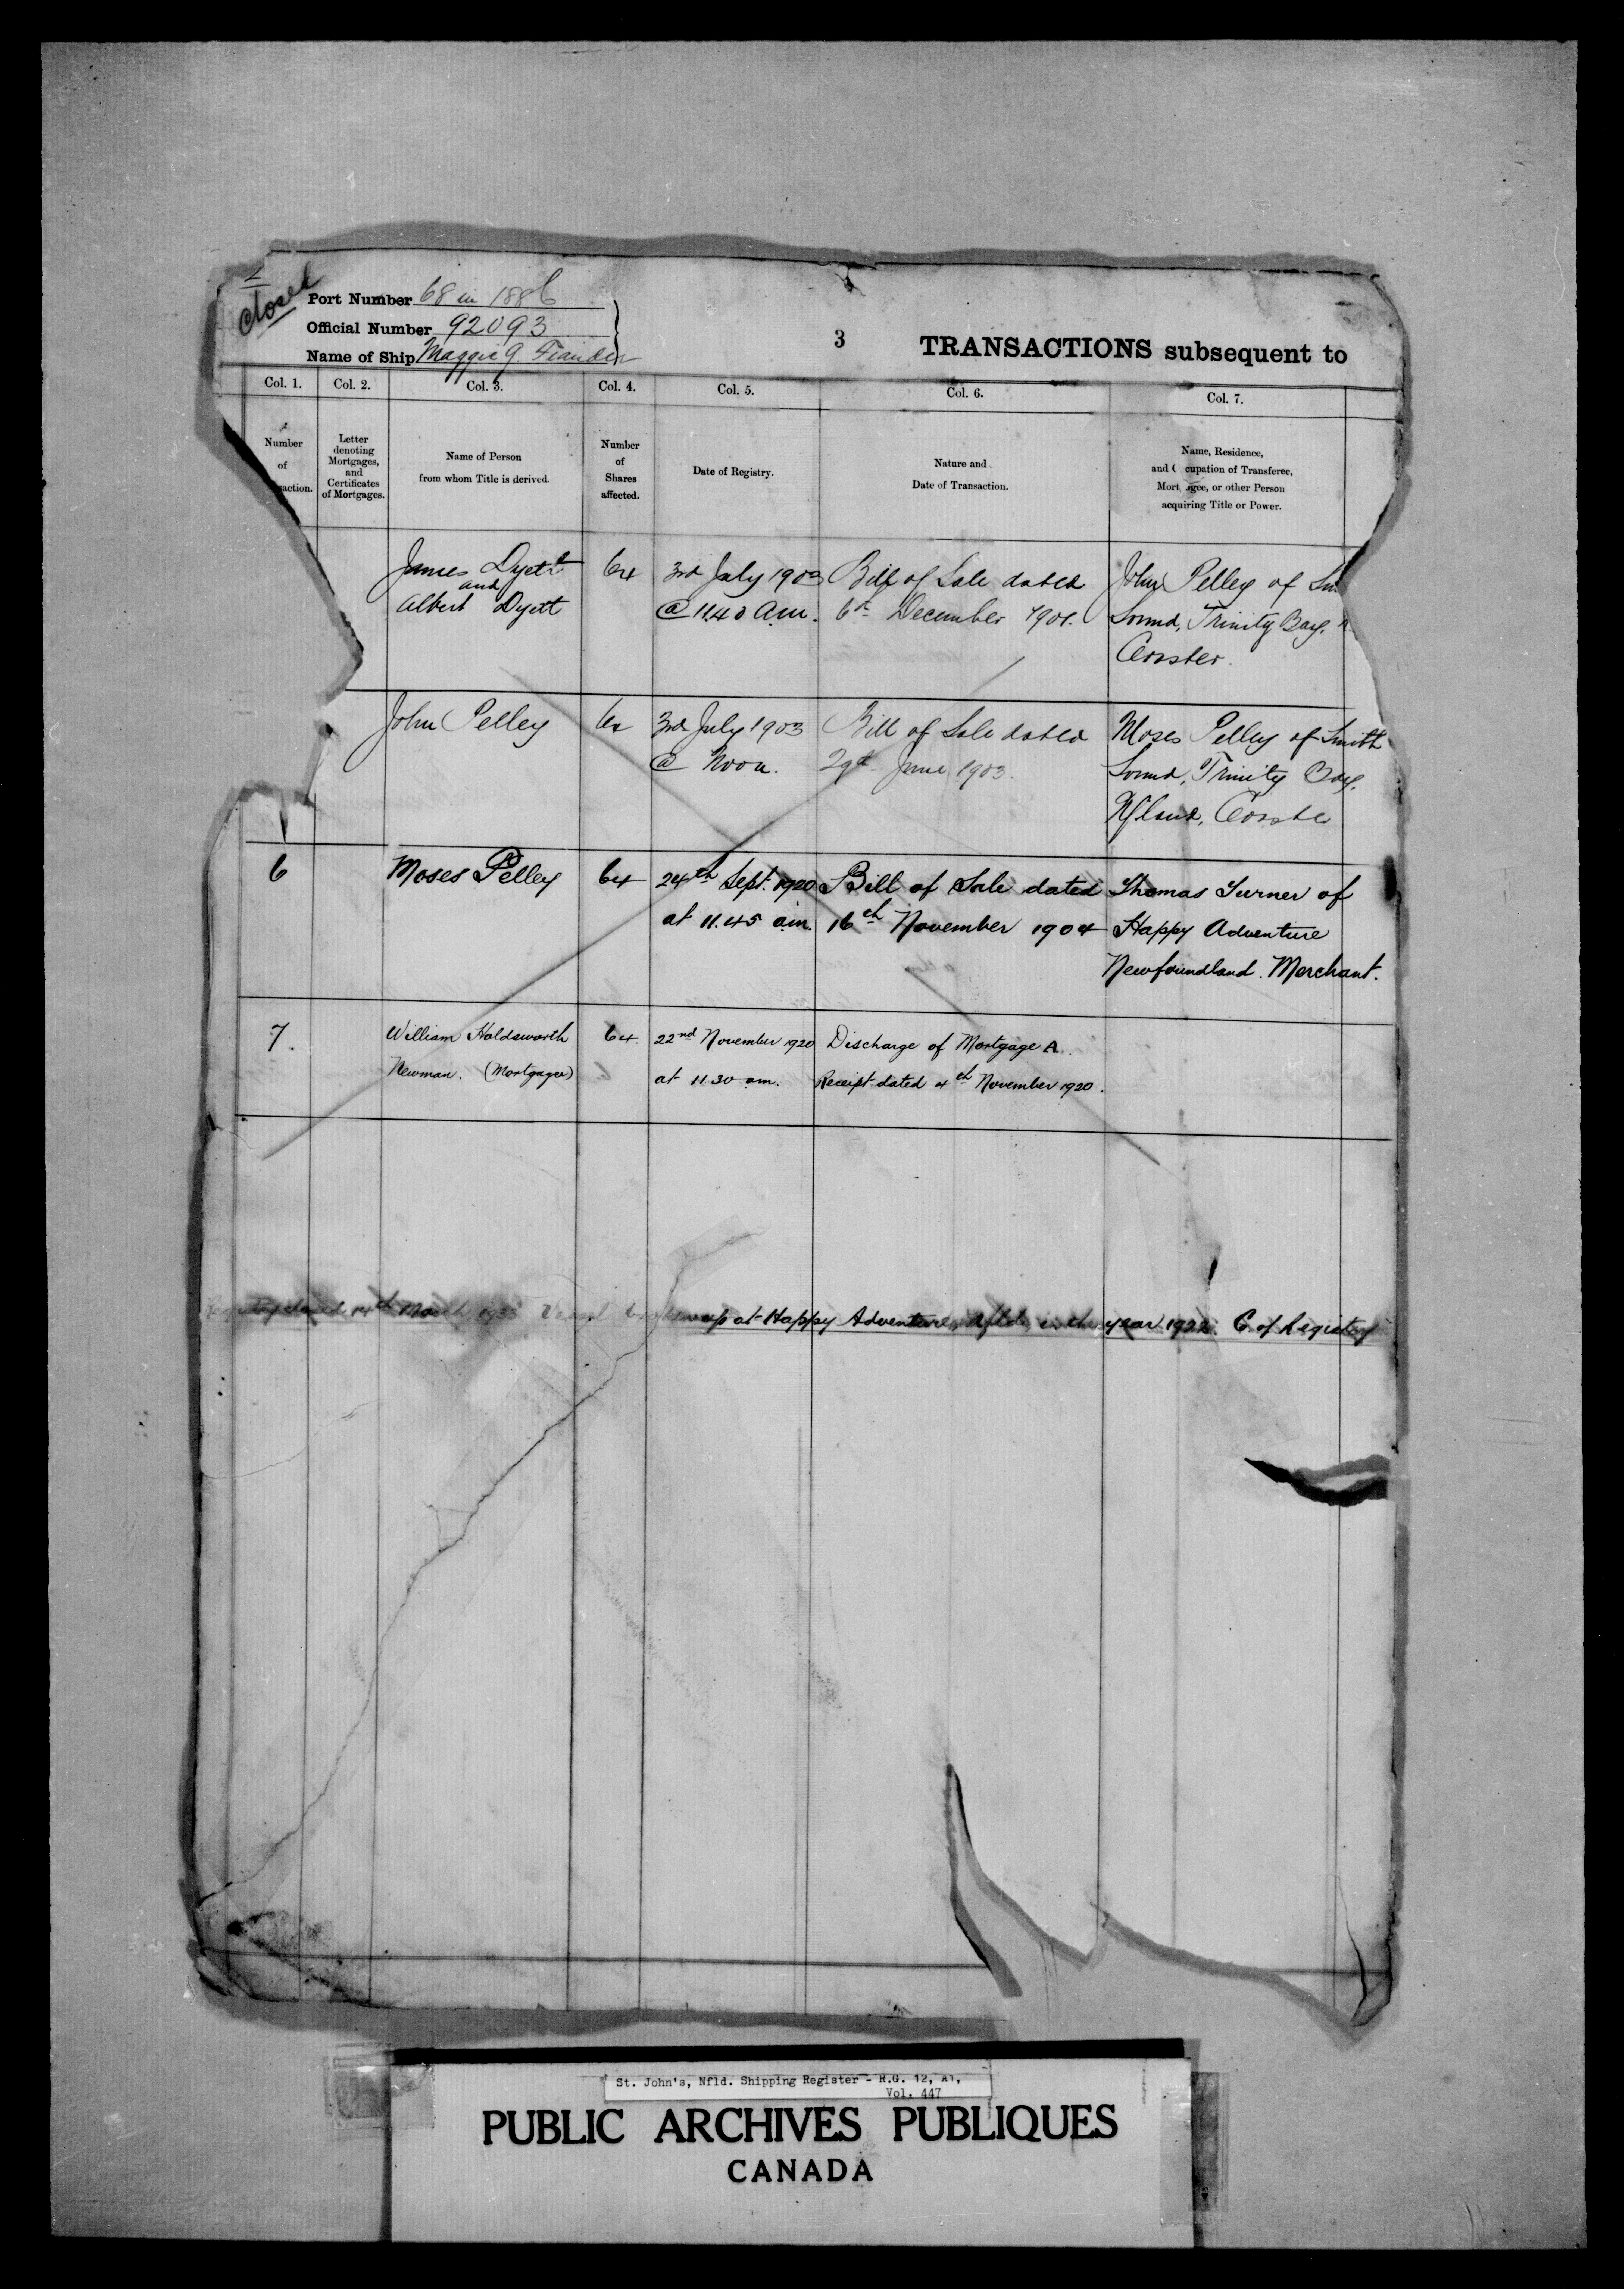 Closed
Port Number 68 in 1886
Official Number 92093
Name of Ship Maggie
3
TRANSACTIONS subsequent to
Col. 1. Col. 2. Col. 3. Col. 4. Col. 5. Col. 6. Col. 7.
Number
of
action.
Letter
denoting
Mortgages,
and
Certificates
of Mortgages.
Name of Person
from whom Title is derived.
Number
of
Shares
affected.
Date of Registry.
Nature and
Date of Transaction.
Name, Residence,
and cupation of Transferee,
Mort gee, or other Person
acquiring Title or Power.
James Dyett 64 3rd July 1903 Bill of Sale dated John Pelley of
and
Albert Dyett @ 11.40 a.m. 6th December 1901. Sound, Trinity Bay,
Coaster.
John Pelley 64 3rd July 1903 Bill of Sale dated Moses Pelley of Smith
@ Noon. 29th June 1903. Sound, Trinity Bay,
Nfland, Coaster
6 Moses Pelley 64 24th Sept. 1920 Bill of Sale dated Thomas Turner of
at 11.45 a.m. 16th November 1904 Happy Adventure
Newfoundland. Merchant.
7. William Holdsworth 64. 22nd November 1920 Discharge of Mortgage A.
Newman. (Mortgagee) at 11.30 am. Receipt dated 4th November 1920.
Registry closed 14th March 1933 Vessel broken up at Happy Adventure, Nfld, in the year 1922. C. of Registry
St. John's, Nfld. Shipping Register - R.G. 12, A1,
Vol. 447
PUBLIC ARCHIVES PUBLIQUES
CANADA